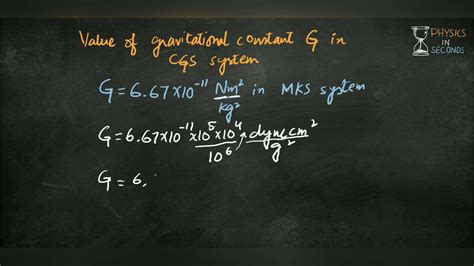 Value of gravitational constant G in
CGS system
PHYSICS
IN
SECONDS
G = 6.67×10⁻¹¹ Nm²/kg² in MKS system
G = 6.67×10⁻¹¹×10⁵×10⁴/10⁶ dyne cm²/g²
G = 6.